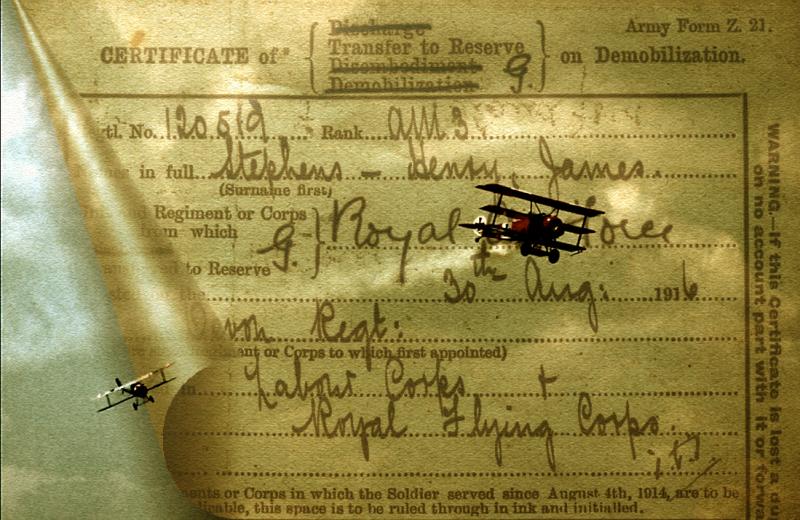 Army Form Z. 21.
Discharge
Transfer to Reserve
Disembodiment
Demobilization.
CERTIFICATE of* on Demobilization.
G.
tl. No. 120519 Rank AM 3
in full Stephens - Henry, James.
(Surname first)
and Regiment or Corps
from which
G. Royal Force
to Reserve
the 30th Aug: 1916
Devon Regt:
ment or Corps to which first appointed)
Labour Corps +
Royal Flying Corps.
ents or Corps in which the Soldier served since August 4th, 1914, are to be
licable, this space is to be ruled through in ink and initialled.
WARNING.—If this Certificate is lost a du
on no account part with it or forwa